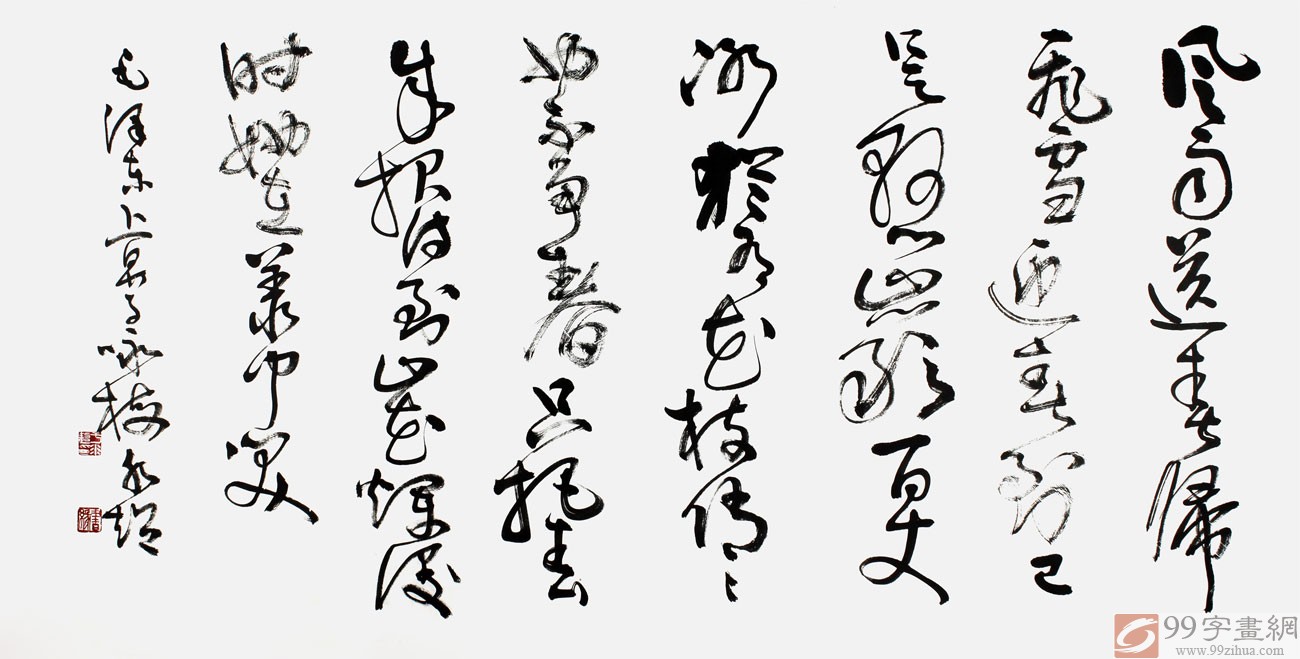 風雨送春歸
飛雪迎春到已
是懸崖百丈
冰猶有花枝俏〻
也不争春只把春
来报待到山花爛漫
时她在叢中笑
毛泽东卜算子咏梅
99字畫網
www.99zihua.com